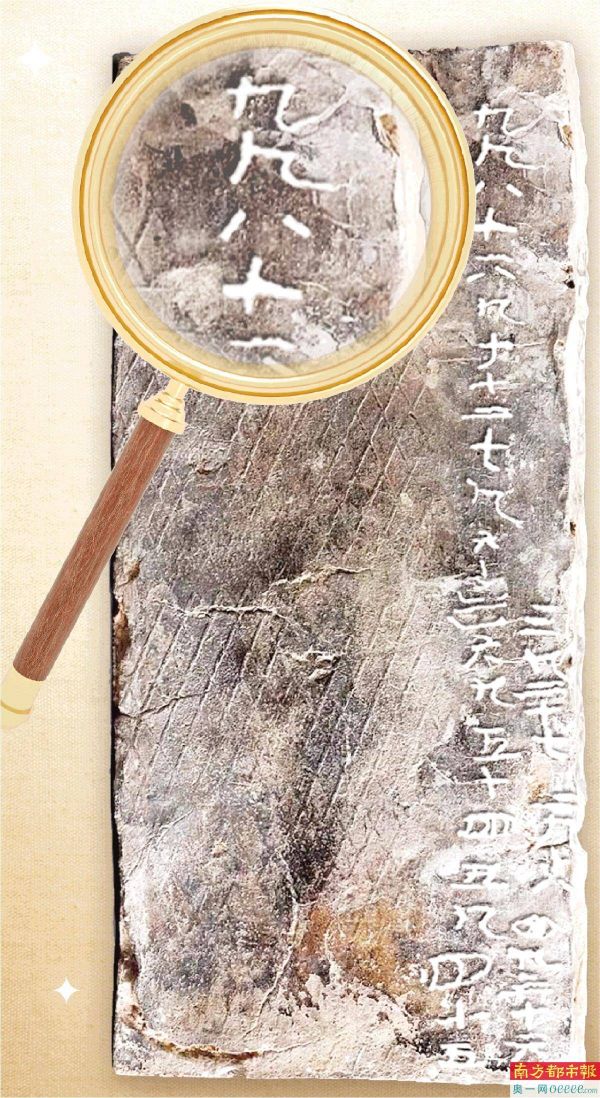 九九八十一
九九八十一八九七十二七九六十三六九五十四五九四十五
三九二十七二九十八 四九三十六
南方都市報
奥一网oeeee.com